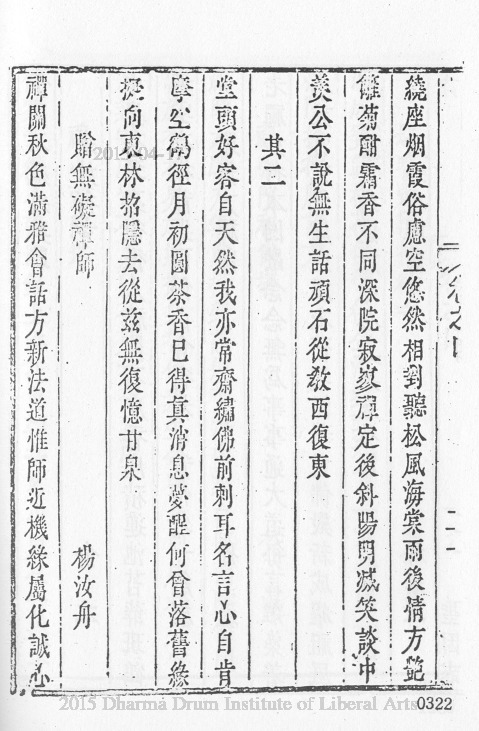 繞座烟霞俗慮空悠然相對聽松風海棠雨後情方艷
籬菊酣霜香不同深院寂寥禪定後斜陽明滅笑談中
羨公不說無生話頑石從教西復東
其二
堂頭好客自天然我亦常齋繡佛前刺耳名言心自肯
摩空鶴徑月初圓茶香已得真消息夢醒何曾落舊緣
擬向東林招隱去從茲無復憶甘泉
贈無礙禪師
楊汝舟
禪關秋色滿雅會話方新法道惟師近機緣屬化誠心
2015 Dharma Drum Institute of Liberal Arts
0322